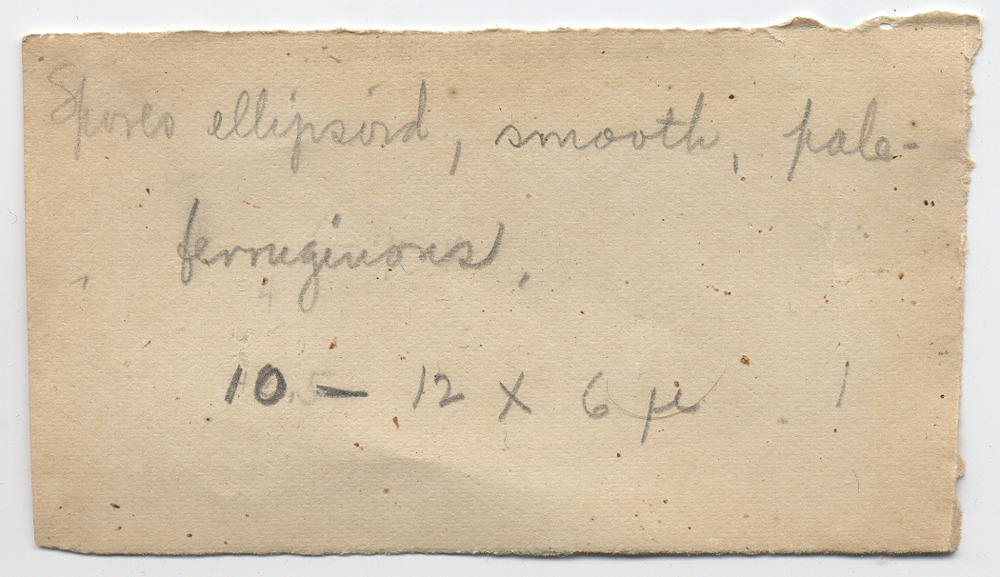 Spores ellipsoid, smooth, pale-
ferruginous,
10 – 12 x 6 µ